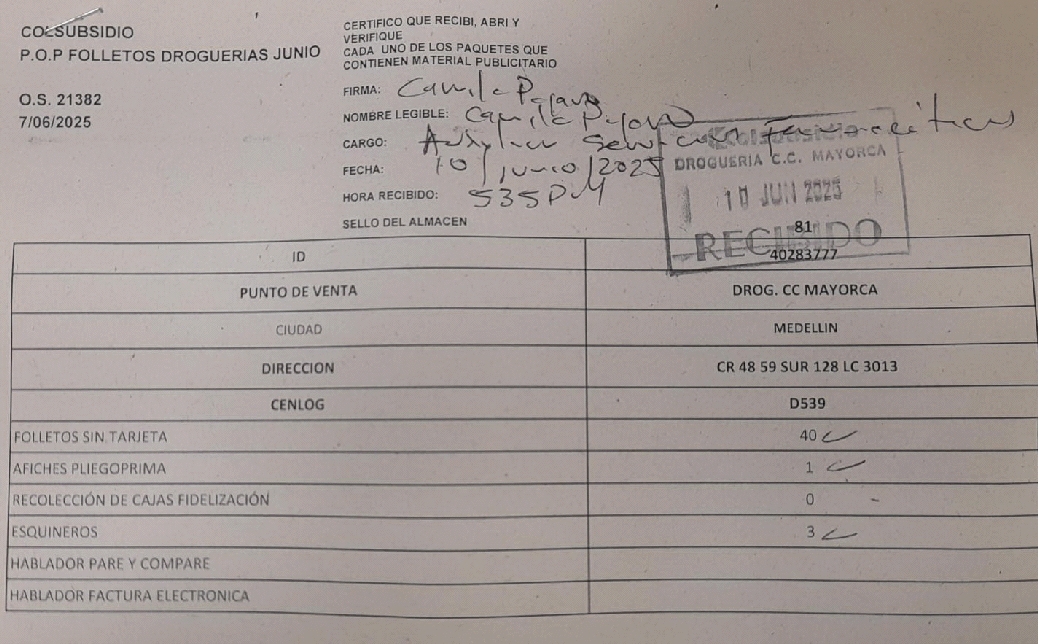 COLSUBSIDIO
P.O.P FOLLETOS DROGUERIAS JUNIO
O.S. 21382
7/06/2025
CERTIFICO QUE RECIBI, ABRI Y
VERIFIQUE
CADA UNO DE LOS PAQUETES QUE
CONTIENEN MATERIAL PUBLICITARIO
FIRMA: Camila
NOMBRE LEGIBLE: Camila
CARGO: Auxiliar
FECHA: 10/junio/2025
HORA RECIBIDO: 535 PM
SELLO DEL ALMACEN
Colsubsidio
DROGUERIA C.C. MAYORCA
10 JUN 2025
RECIBIDO
81
ID 40283777
PUNTO DE VENTA DROG. CC MAYORCA
CIUDAD MEDELLIN
DIRECCION CR 48 59 SUR 128 LC 3013
CENLOG D539
FOLLETOS SIN TARJETA 40
AFICHES PLIEGOPRIMA 1
RECOLECCIÓN DE CAJAS FIDELIZACIÓN 0 -
ESQUINEROS 3
HABLADOR PARE Y COMPARE
HABLADOR FACTURA ELECTRONICA